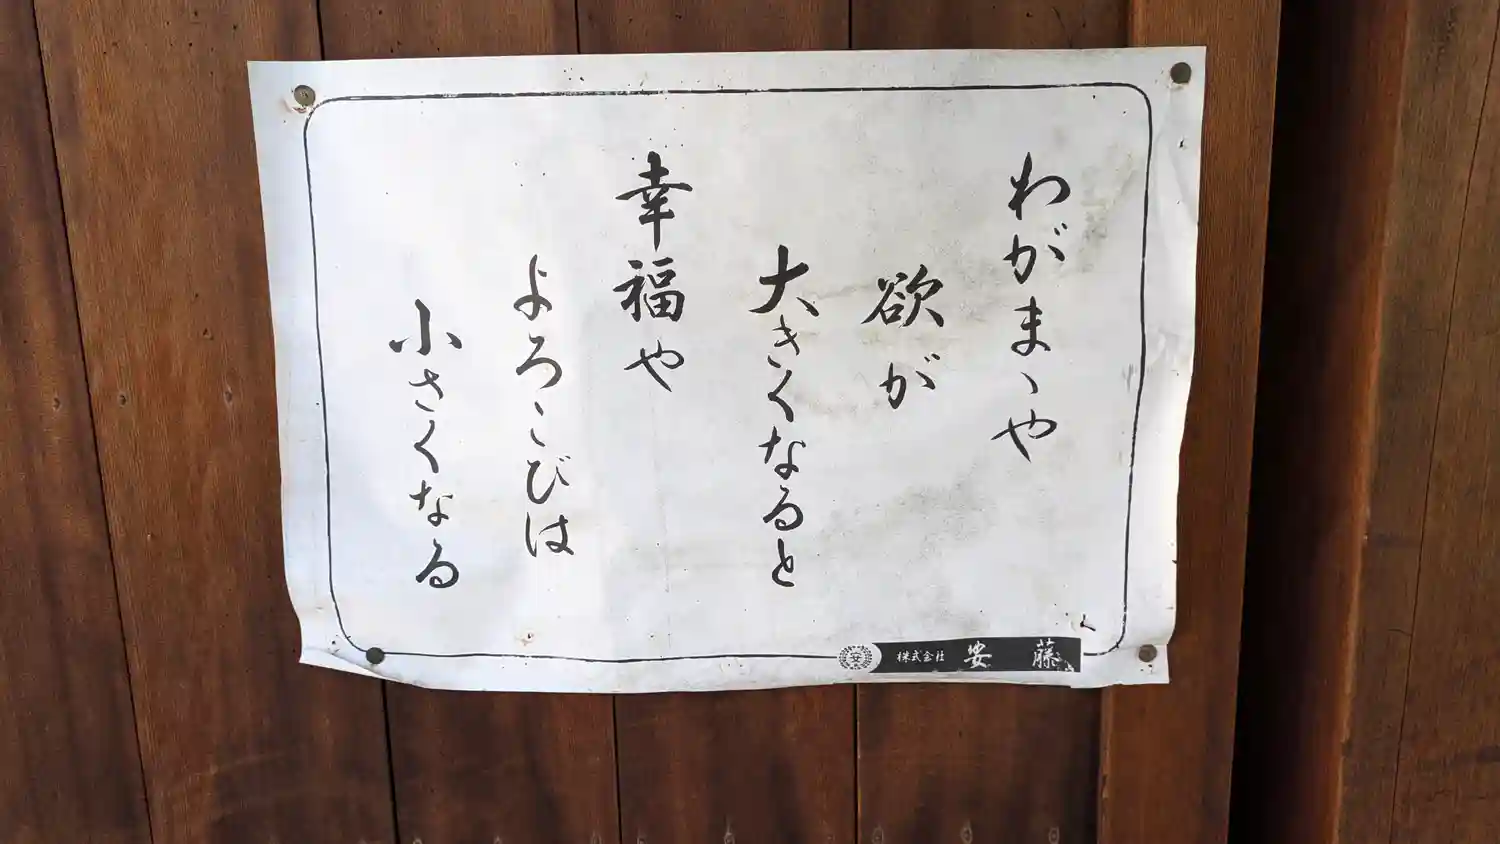 わがまゝや
欲が
大きくなると
幸福や
よろこびは
小さくなる
株式会社 安藤